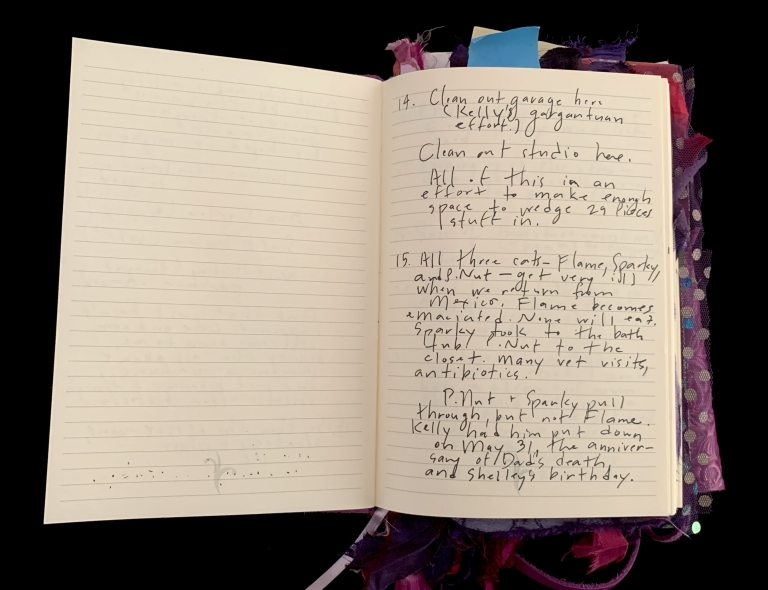 14. Clean out garage here
(Kelly's gargantuan
effort.)
Clean out studio here.
All of this in an
effort to make enough
space to wedge 29 pieces
stuff in.
15. All three cats – Flame, Sparky,
and P.Nut – get very ill
when we return from
Mexico. Flame becomes
emaciated. None will eat.
Sparky took to the bath
tub, P.Nut to the
closet. Many vet visits,
antibiotics.
P.Nut + Sparky pull
through, but not Flame.
Kelly had him put down
on May 31, the anniver-
sary of Dad's death
and Shelley's birthday.